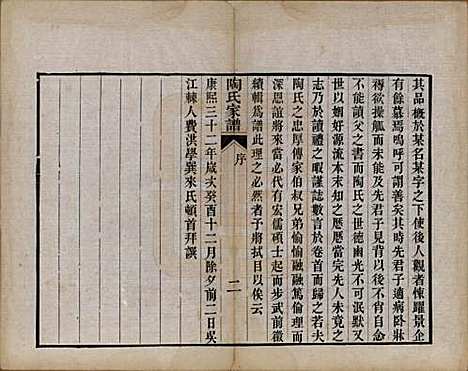 其品概於某名某字之下使後人觀者悚躍景企
有餘慕焉嗚呼可謂善矣其時先君子適病臥牀
蓐欲操觚而未能及先君子見背以後不惟不忍亦
不能讀父之書而陶氏之世德幽光不可
世以姻好源流本末言之歷歷當完先人未竟之
志乃於讀禮之暇謹誌數言於卷首而歸之若夫
陶氏之忠厚傳家伯叔兄弟愉愉融融篤倫理而
深恩誼將來當必代有宏儒碩士起而步武前徽
續輯爲譜此理之必然者予將拭目以俟云
陶氏家譜
序
二
康熙三十二年歲次癸酉十二月除夕前二日吳
江棘人費洪學巽來氏頓首拜譔